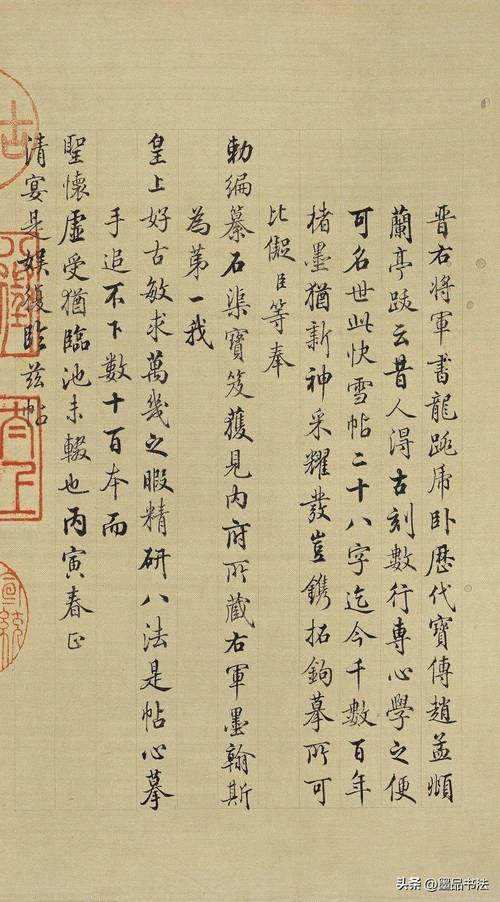 晋右將軍書龍跳虎臥歷代寶傳趙孟頫
蘭亭跋云昔人得古刻數行專心學之便
可名世此快雪帖二十八字迄今千數百年
楮墨猶新神采耀發豈鐫拓鉤摹所可
比儗臣等奉
勅編纂石渠寶笈獲見內府所藏右軍墨翰斯
為第一我
皇上好古敏求萬幾之暇精研八法是帖心摹
手追不下數十百本而
聖懷虛受猶臨池未輟也丙寅春正
清宴是娛復臨茲帖
头条@墨品书法